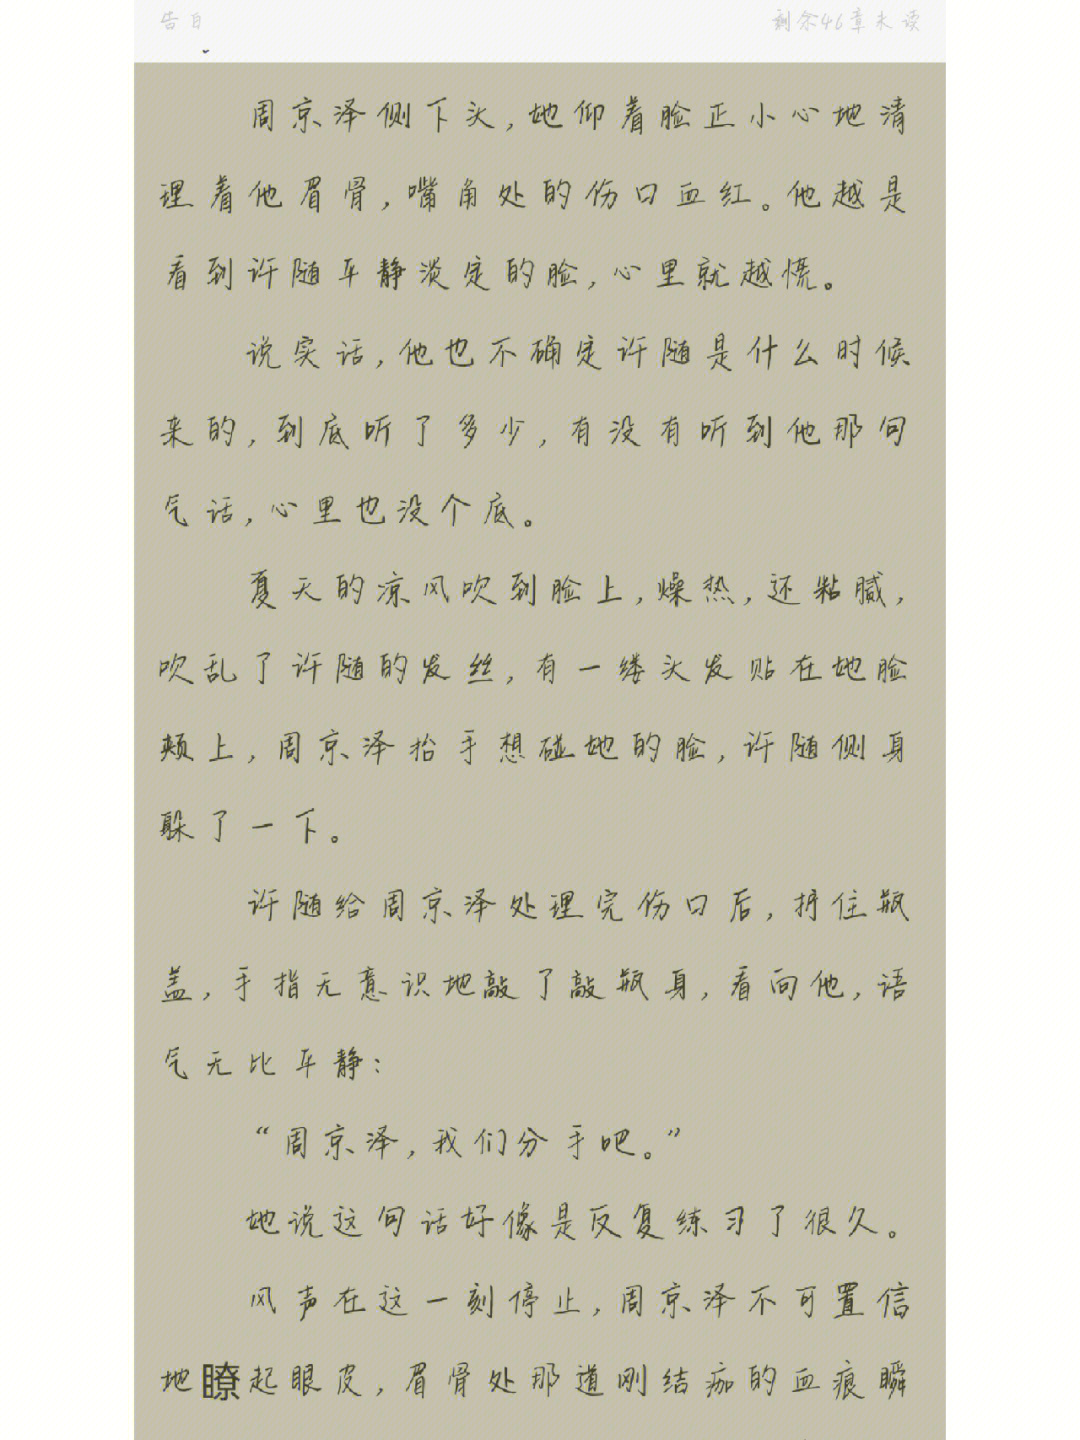 告白
剩余46章未读
周京泽侧下头,她仰着脸正小心地清
理着他眉骨,嘴角处的伤口血红。他越是
看到许随平静淡定的脸,心里就越慌。
说实话,他也不确定许随是什么时候
来的,到底听了多少,有没有听到他那句
气话,心里也没个底。
夏天的凉风吹到脸上,燥热,还粘腻,
吹乱了许随的发丝,有一缕头发贴在她脸
颊上,周京泽抬手想碰她的脸,许随侧身
躲了一下。
许随给周京泽处理完伤口后,拧住瓶
盖,手指无意识地敲了敲瓶身,看向他,语
气无比平静:
“周京泽,我们分手吧。”
她说这句话好像是反复练习了很久。
风声在这一刻停止,周京泽不可置信
地瞭起眼皮,眉骨处那道刚结痂的血痕瞬